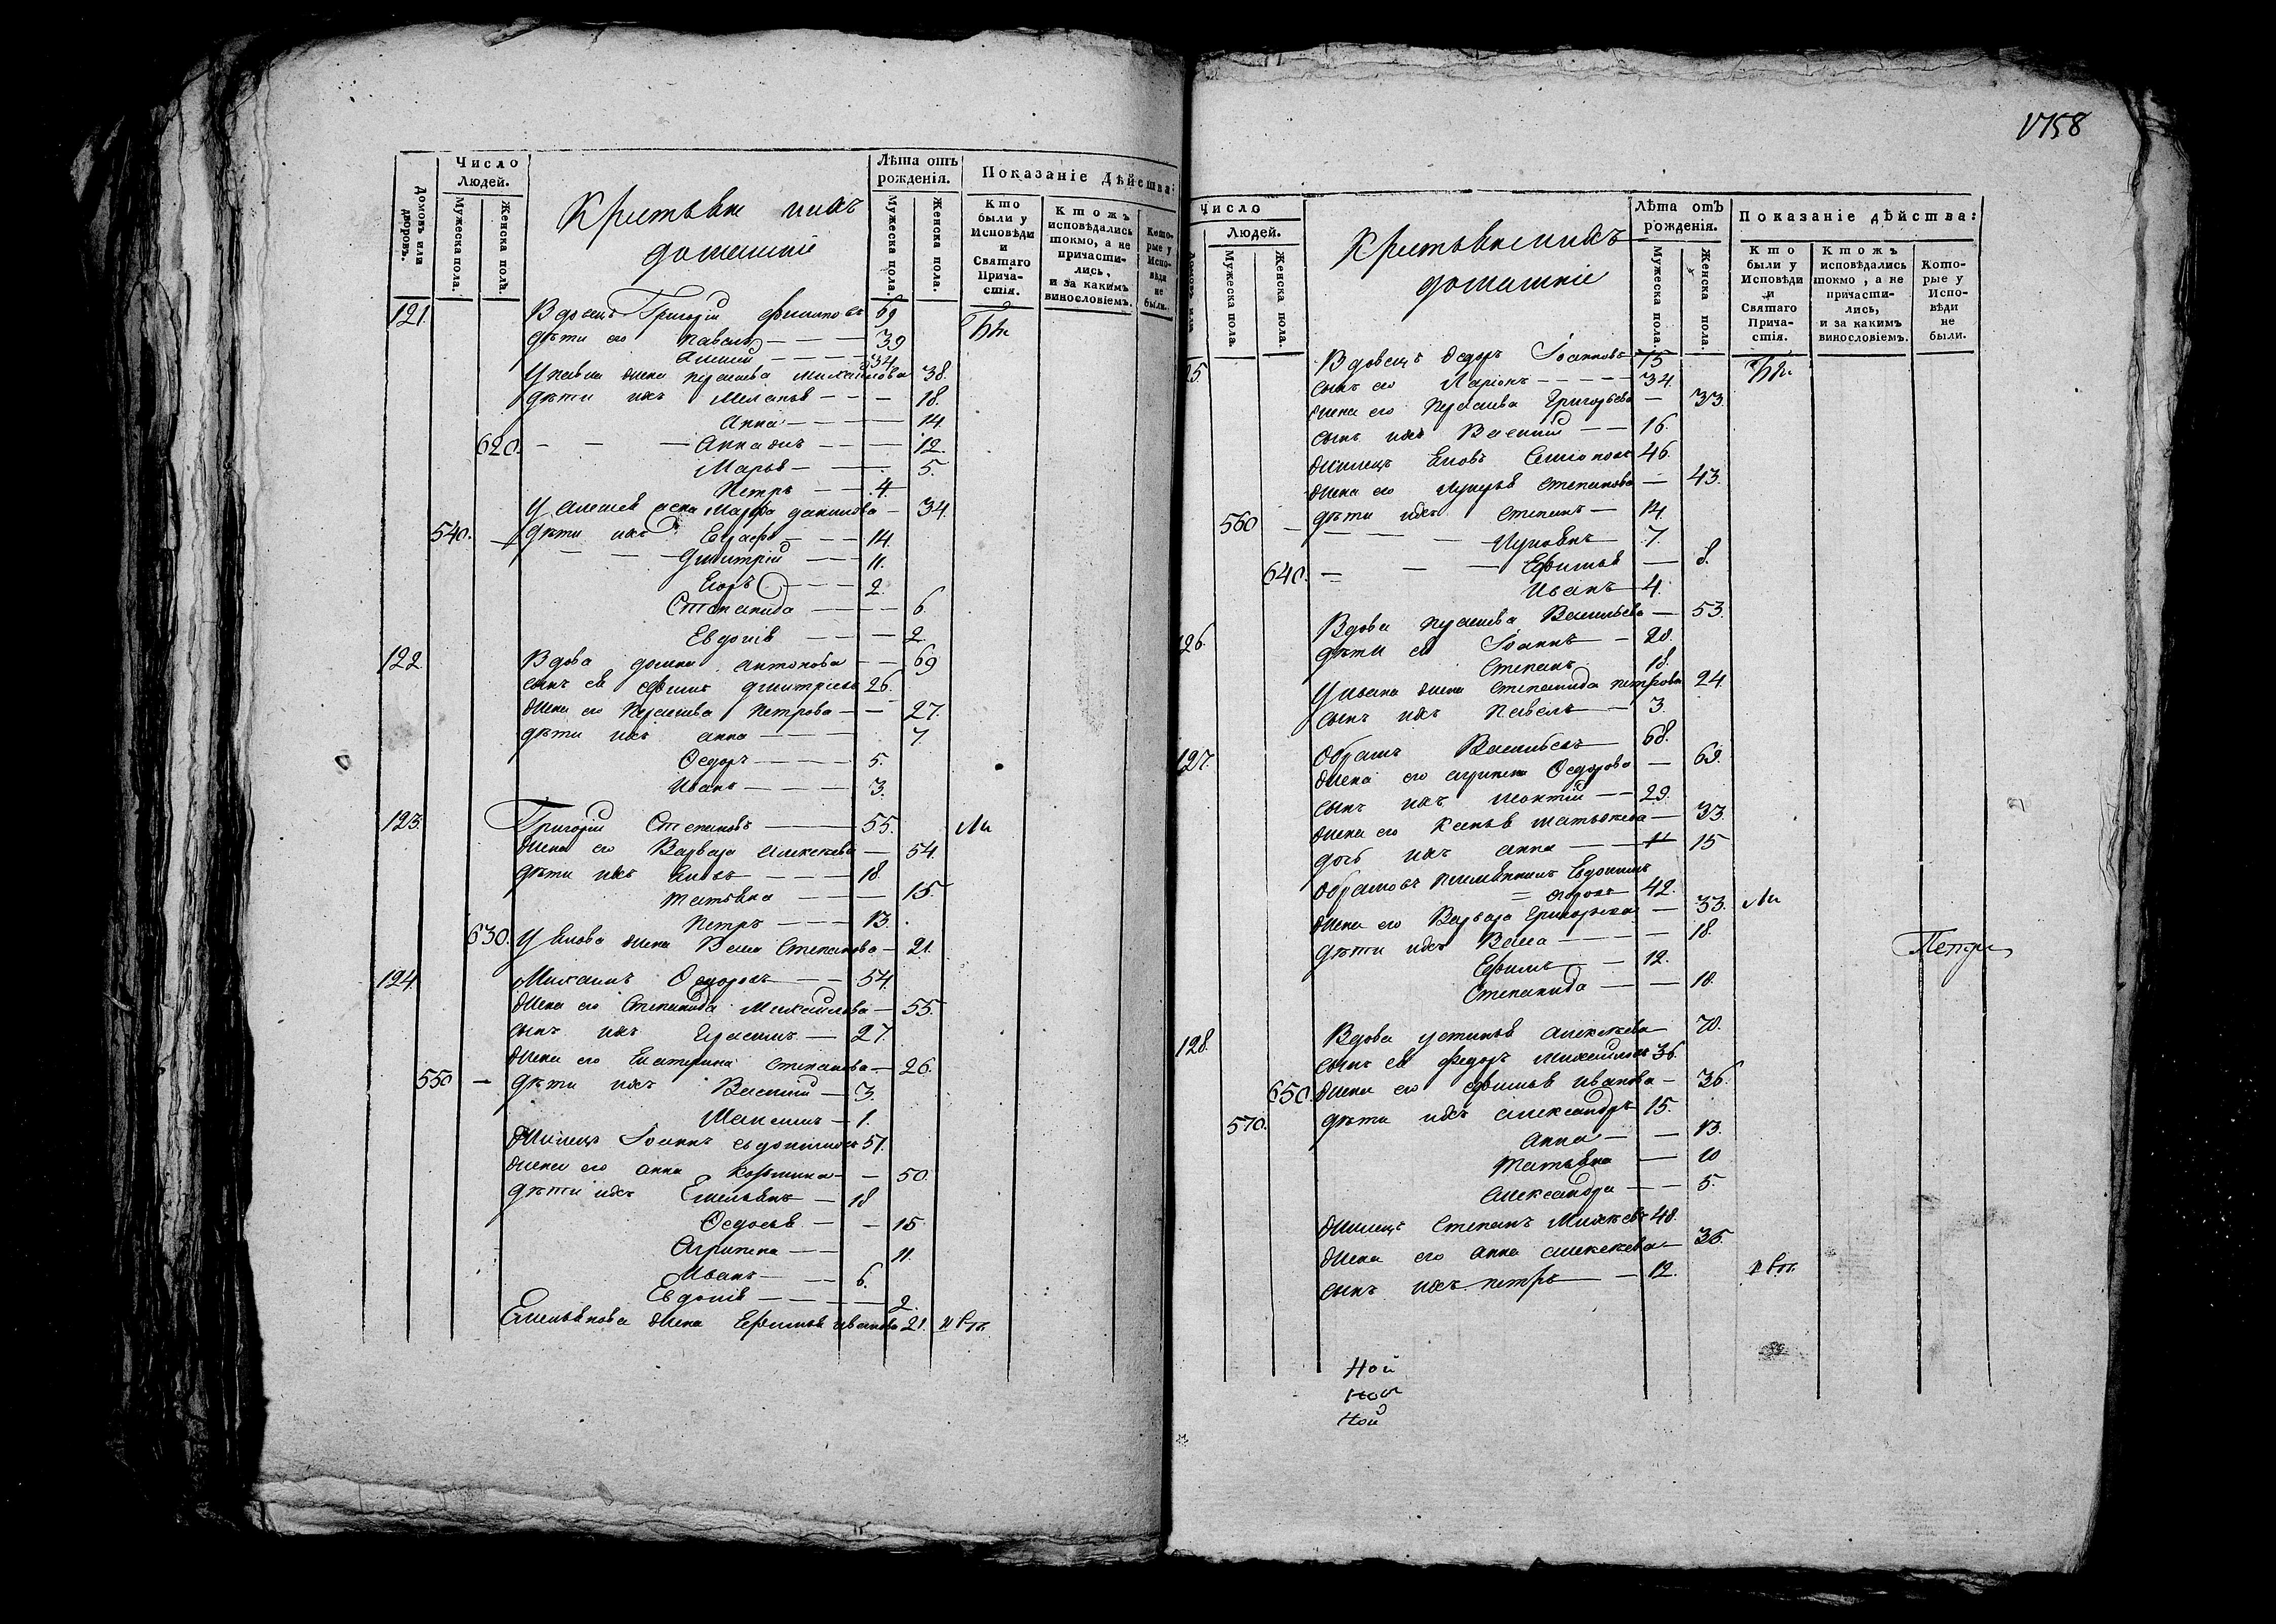 Число
Людей.
Домовъ или дворовъ.
Мужеска пола.
Женска пола.
Крестьяне ихъ
домашніе
Лѣта отъ рожденія.
Мужеска пола.
Женска пола.
Показаніе дѣйства:
Кто были у Исповѣди и Святаго Прича-стія.
Ктожъ исповѣдались токмо, а не причасти-лись, и за какимъ винословіемъ.
Кото-рые у Испо-вѣди не были.
121. Вдовецъ Григорій Филиповъ 69
дѣти его Павелъ 39
Алексѣй 34
У Павла жена Прасковья Михайлова 38.
дѣти ихъ Меланья 18.
Анна 14
620. Анна жъ 12
Марья 5.
Петръ 4
У Алексѣя жена Марфа Данилова 34.
540. дѣти ихъ Евграфъ 14.
Дмитрій 11.
Егоръ 2.
Степанида 6
Евдокія 2
122 Вдова Домна Антонова 69
сынъ ея Ефимъ Дмитріевъ 26.
жена его Прасковья Петрова 27.
дѣти ихъ Анна 7.
Ѳедоръ 5.
Иванъ 3.
123. Григорій Степановъ 55.
жена его Варвара Алексѣева 54.
дѣти ихъ Яковъ 18.
Татьяна 15.
Петръ 13.
630. У Якова жена Васса Степанова 21.
124 Михаилъ Ѳедоровъ 54.
жена его Степанида Михайлова 55.
сынъ ихъ Герасимъ 27.
жена его Екатерина Степанова 26.
550 дѣти ихъ Василій 3.
Максимъ 1.
жилецъ Іоаннъ Евдокимовъ 51.
жена его Анна Козмина 50.
дѣти ихъ Емельянъ 18
Ѳедосья 15
Агрипена 11.
Иванъ 6.
Евдокія 2.
Емельянова жена Ефимья Иванова 21.
1758
Число
Людей.
Мужеска пола.
Женска пола.
Крестьяне ихъ
домашніе
Лѣта отъ рожденія.
Мужеска пола.
Женска пола.
Показаніе дѣйства:
Кто были у Исповѣди и Святаго Прича-стія.
Ктожъ исповѣдались токмо, а не причасти-лись, и за какимъ винословіемъ.
Кото-рые у Испо-вѣди не были.
25. Вдовецъ Ѳедоръ Іоанновъ 75
сынъ его Ларіонъ 34.
жена его Прасковья Григорьева 33.
сынъ ихъ Василій 16.
жилецъ Яковъ 46.
жена его Лукерья Степанова 43.
560 дѣти ихъ Степанъ 14.
Лукьянъ 7.
640. Ефимья 8.
Иванъ 4.
26. Вдова Прасковья Васильева 53.
дѣти ея Іоаннъ 20.
Степанъ 18.
У Ивана жена Степанида Петрова 24.
сынъ ихъ Павелъ 3.
127. Абрамъ Васильевъ 68.
жена его Агрипена Ѳедорова 69.
сынъ ихъ 29.
жена его Ксенья Матвѣева 33.
дочь ихъ Анна 15
Абрамовъ племянникъ Евдокимъ
42.
жена его Варвара Григорьева 33.
дѣти ихъ Васса 18.
Ефимъ 12.
Степанида 10.
128. Вдова Устинья Алексѣева 70.
сынъ ея Федоръ Михайловъ 36.
650. жена его Ефимья Иванова 36.
570. дѣти ихъ Александръ 15.
Анна 13.
Татьяна 10
Александра 5.
жилецъ Степанъ 48.
жена его Анна Алексѣева 35.
сынъ ихъ Петръ 12.
Ной
Ной
Ной